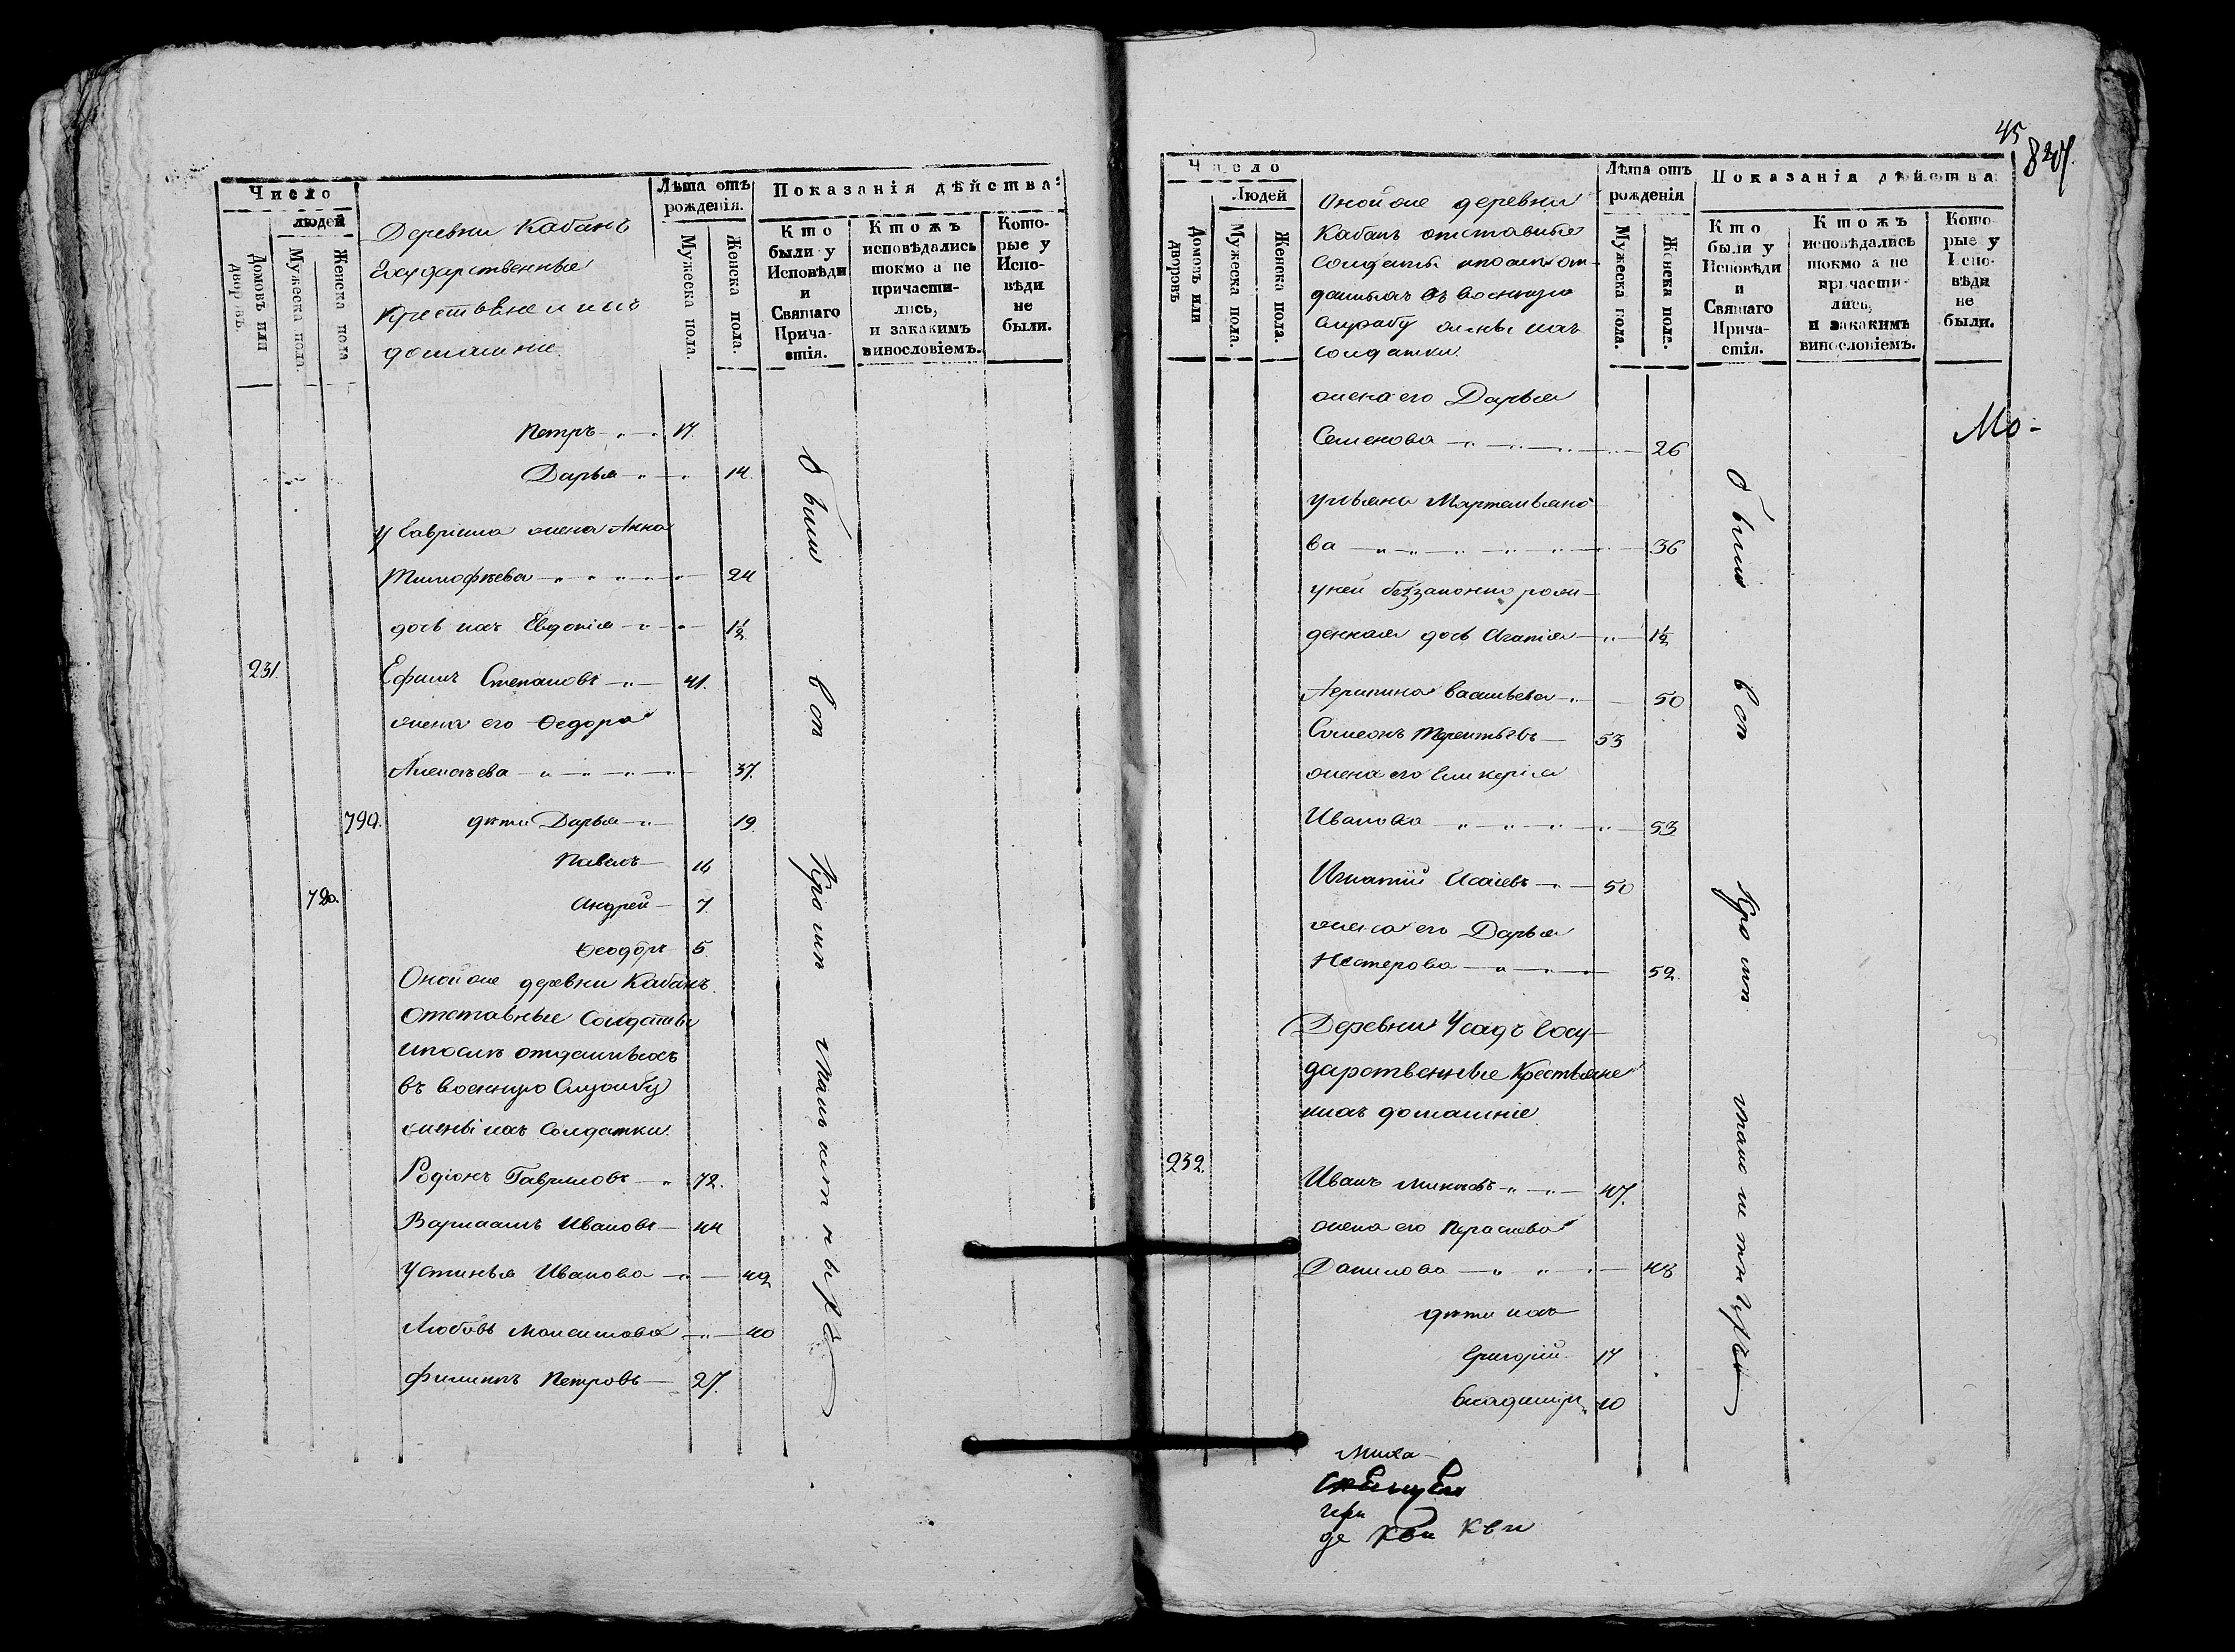 Число
людей
Домовъ или дворовъ
Мужеска пола.
Женска пола.
Деревни Кабанъ
Государственныє
Крестьяне и ихъ
домашние
Лѣта отъ рожденія.
Мужеска пола.
Женска пола.
Показанія дѣйства:
Кто были у Исповѣди и Святаго Причастія.
Ктожъ исповѣдались токмо а не причастились, и закакимъ винословіемъ.
Которые у Исповѣди не были.
Петръ 17.
Дарья 14.
у Гавріила жена Анна
Тимофѣева 24
дочь ихъ Евдокія 1½
231. Ефимъ Степановъ 41.
жена его Феодора
Алексѣева 37.
799. дѣти Дарья 19.
Павелъ 16
Андрей 7.
Феодоръ 5.
Оной же деревни Кабанъ
Отставные Солдаты
и после отданныхъ
въ военную Службу
жены ихъ Солдатки.
Родіонъ Гавриловъ 72.
Варлаамъ Ивановъ 44
Устинья Иванова 42
Любовь Максимова 40
Филиппъ Петровъ 27.
были
вси
Кромѣ
малолетныхъ
45
Число
Людей
Домовъ или дворовъ
Мужеска пола.
Женска пола.
Оной же деревни
Кабанъ отставные
Солдаты и после от-
данныхъ въ военную
Службу жены ихъ
Солдатки.
Лѣта отъ рожденія
Мужеска пола.
Женска пола.
Показанія дѣйства:
Кто были у Исповѣди и Святаго Причастія.
Ктожъ исповѣдались токмо а не причастились, и закакимъ винословіемъ.
Которые у Исповѣди не были.
жена его Дарья
Семенова 26
Ульяна Мартемьяно-
ва 36
у ней беззаконно рож-
денная дочь Агапія 1½
Агрипина Васильева 50
Симеонъ Терентьевъ 53
жена его Гликерія
Иванова 53
Игнатій Исаіевъ 50
жена его Дарья
Нестерова 52.
Деревни Усадъ Госу-
дарственные Крестьяне
и ихъ домашніе.
232. Иванъ Минѣевъ 47.
жена его Параскева
Данилова 48
дѣти ихъ
Григорій 14
Владимиръ 10
были
вси
Кромѣ
Мо-
Миха-